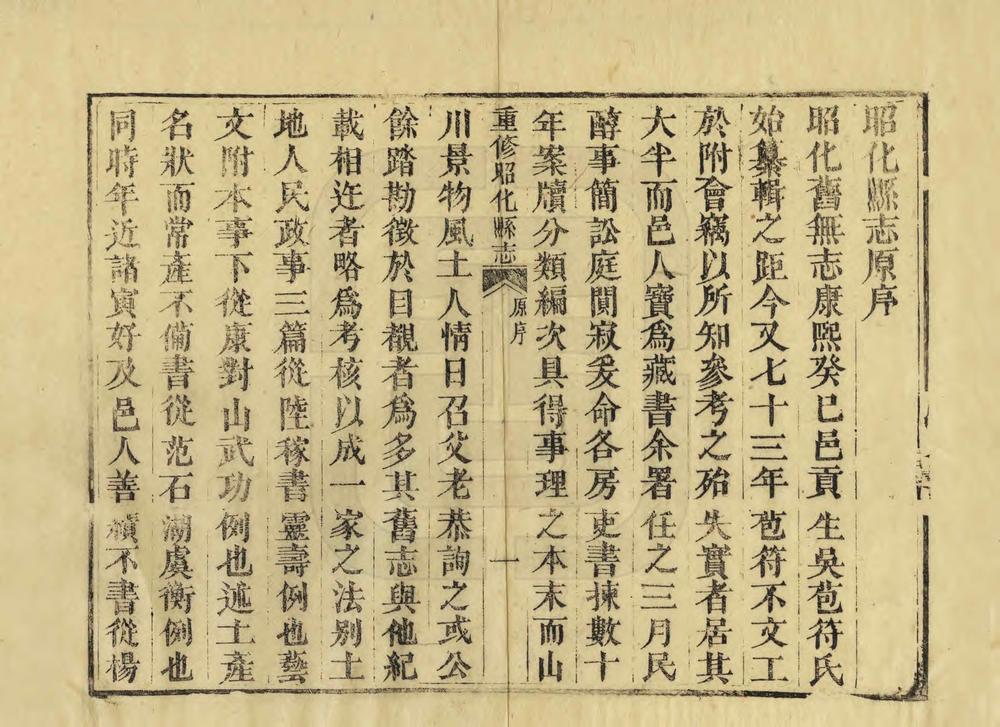 昭化縣志原序
昭化舊無志康熙癸巳邑貢生吳苞符氏
始纂輯之距今又七十三年苞符不文工
於附會竊以所知參考之殆失實者居其
大半而邑人寶為藏書余署任之三月民
醇事簡訟庭閴寂爰命各房吏書揀數十
年案牘分類編次具得事理之本末而山
重修昭化縣志 原序 一
川景物風土人情日召父老恭詢之或公
餘踏勘徵於目覩者為多其舊志與他紀
載相迕者略為考核以成一家之法別土
地人民政事三篇從陸稼書靈壽例也藝
文附本事下從康對山武功例也述土產
名狀而常產不備書從范石湖虞衡例也
同時年近諸寅好及邑人善績不書從楊